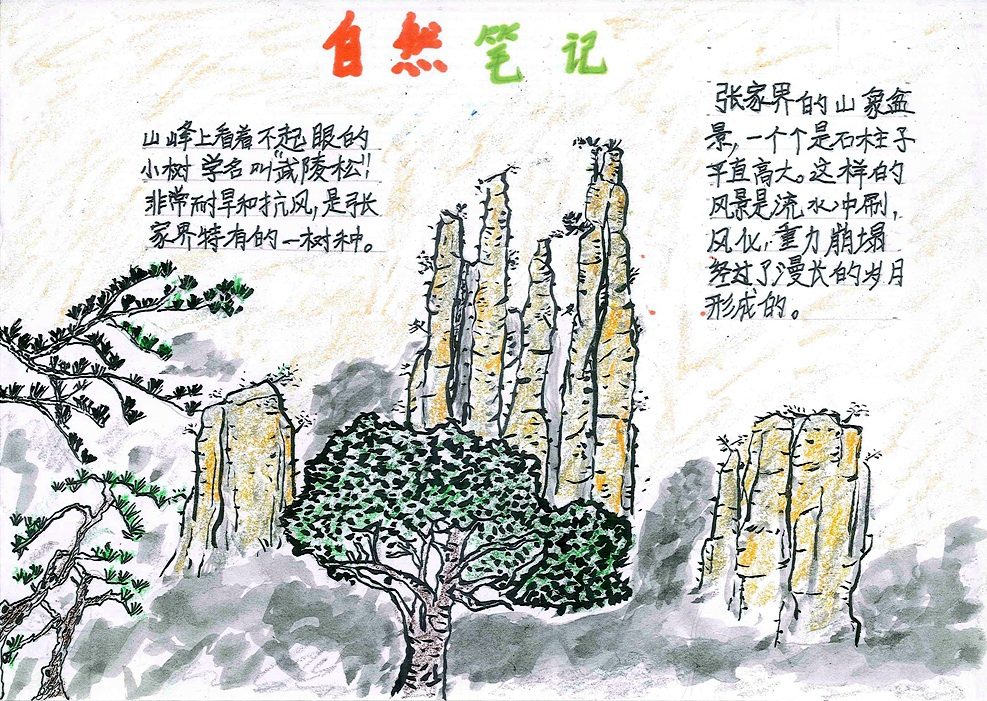 自然笔记
山峰上看着不起眼的
小树学名叫"武陵松"!
非常耐旱和抗风,是张
家界特有的一树种。
张家界的山象盆
景,一个个是石柱子
平直高大。这样的
风景是流水冲刷,
风化,重力崩塌
经过了漫长的岁月
形成的。